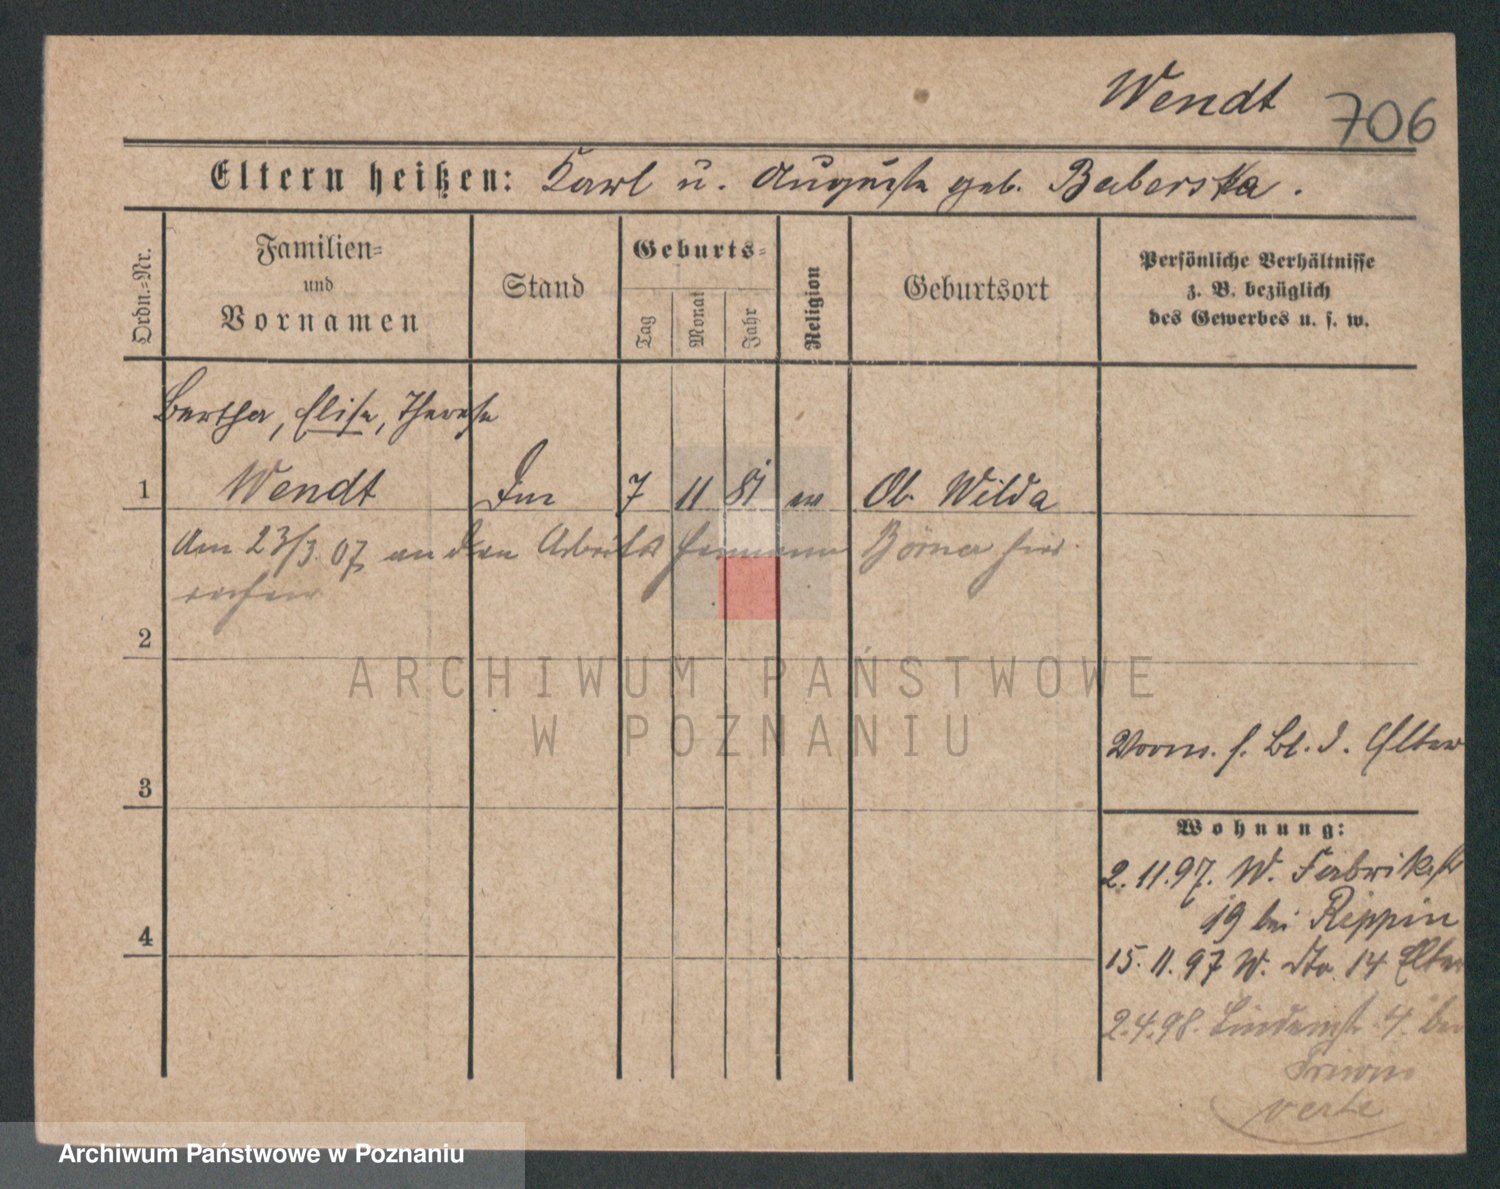 Wendt
706
Eltern heißen: Karl u. Auguste geb. Baberska.
Ordn.=Nr.
Familien=
und
Vornamen
Stand
Geburts=
Tag
Monat
Jahr
Religion
Geburtsort
Persönliche Verhältnisse
z. B. bezüglich
des Gewerbes u. s. w.
Bertha, Elise, Therese
1 Wendt 7 11 81 ev Ob. Wilda
Am 23/3. 07 an den Arbeiter Hermann Börner hier
2
ARCHIWUM PAŃSTWOWE
W POZNANIU
Vorm. s. Bl. d. Elter
3
Wohnung:
2. 11. 97. W. Fabrikst
19 bei Rippin
4
15. 11. 97 W. dto. 14 Elter
2. 4. 98. Lindenst. 4. bei
verte
Archiwum Państwowe w Poznaniu